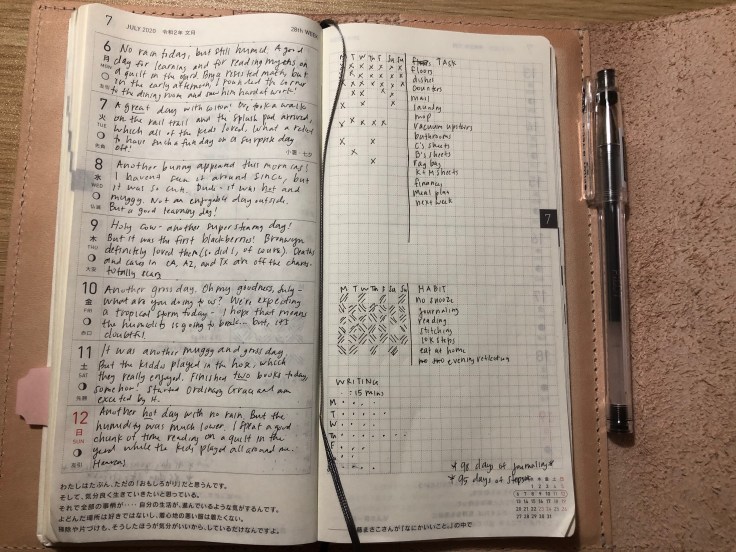 7 JULY 2020 令和2年 文月 28th WEEK
6 月 MON
No rain today, but still humid. A good
day for learning and for reading myths on
a quilt in the yard. resisted math, but
in the early afternoon, I rounded the corner
to the dining room and saw him hard at work!
7 火 TUE 先負
A great day with cotton! We took a walk
on the rail trail and the splash pad arrived,
which all of the kids loved. What a relief
to have such a fun day on a surprise day
off!
小暑・七夕
8 水 WED 仏滅
Another bunny appeared this morning!
I haven't seen it around since, but
it was so cute. Dude - it was hot and
muggy. Not an enjoyable day outside.
But a good learning day!
9 木 THU 大安
Holy cow - another super steamy day!
But it was the first blackberries! Bronwyn
definitely loved them (so did I, of course). Deaths
and cases in CA, AZ, and TX are off the charts.
totally scary
10 金 FRI 赤口
Another gross day. Oh my goodness, July -
what are you doing to us? We're expecting
a tropical storm today - I hope that means
the humidity is going to break... but, it's
doubtful.
11 土 SAT 先勝
It was another muggy and gross day
but the kiddos played in the hose, which
they really enjoyed. Finished two books today,
somehow! Started Ordinary Grace and am
excited by it.
12 日 SUN 友引
Another hot day with no rain. But the
humidity was much lower. I spent a good
chunk of time reading on a quilt in the
yard while the kids played all around me.
Heaven.
わたしはたぶん、ただの「おもしろがり」だと思うんです。
そして、気分良く生きていきたいと思っている。
それで全部の事柄が‥‥自分の生活が、進んでいるような気がするんです。
よどんだ場所は好きではないし、着心地の悪い服は着たくない。
掃除や片づけも、そうしたほうが気分がいいから、しているだけなんですよ。
M T W Th F Sa Su TASK
floors
dishes
counters
mail
laundry
mop
vacuum upstairs
bathrooms
C's sheets
B's sheets
rag bag
K+M sheets
finances
meal plan
next week
7
M T W Th F Sa Su HABIT
no snooze
journaling
reading
stitching
10K steps
eat at home
evening reflecting
WRITING
• = 15 mins
M
T
W
Th
F
* 98 days of journaling *
* 95 days of steps *
まきこさんが『なにかいいこと。』の中で